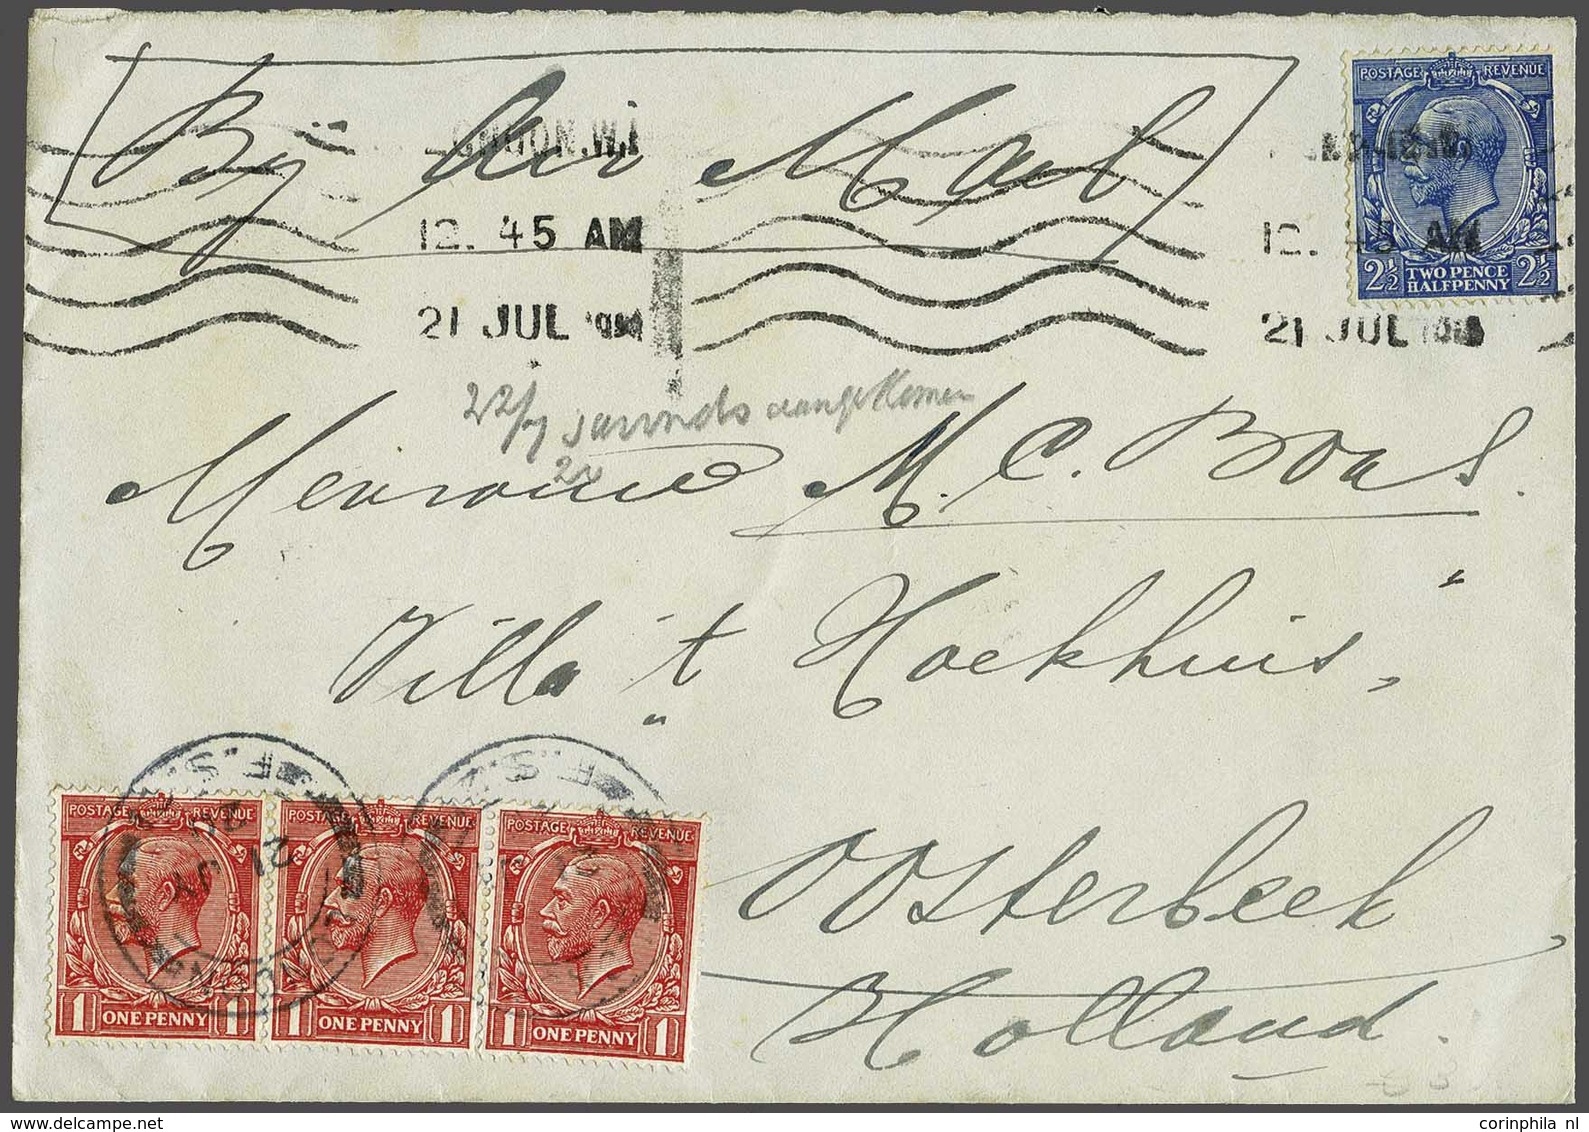 By Air Mail
LONDON.W.1
12.45 AM
21 JUL
12.45 AM
21 JUL
POSTAGE REVENUE
2½ TWO PENCE HALFPENNY 2½
22/7 savonds aangekomen
Mevrouw M. C. Boas.
Villa "'t Hoekhuis",
Oosterbeek
Holland.
F.S.
21 JY 20
LONDON
F.S.
21
POSTAGE REVENUE
1 ONE PENNY 1
POSTAGE REVENUE
1 ONE PENNY 1
POSTAGE REVENUE
1 ONE PENNY 1
corinphila nl